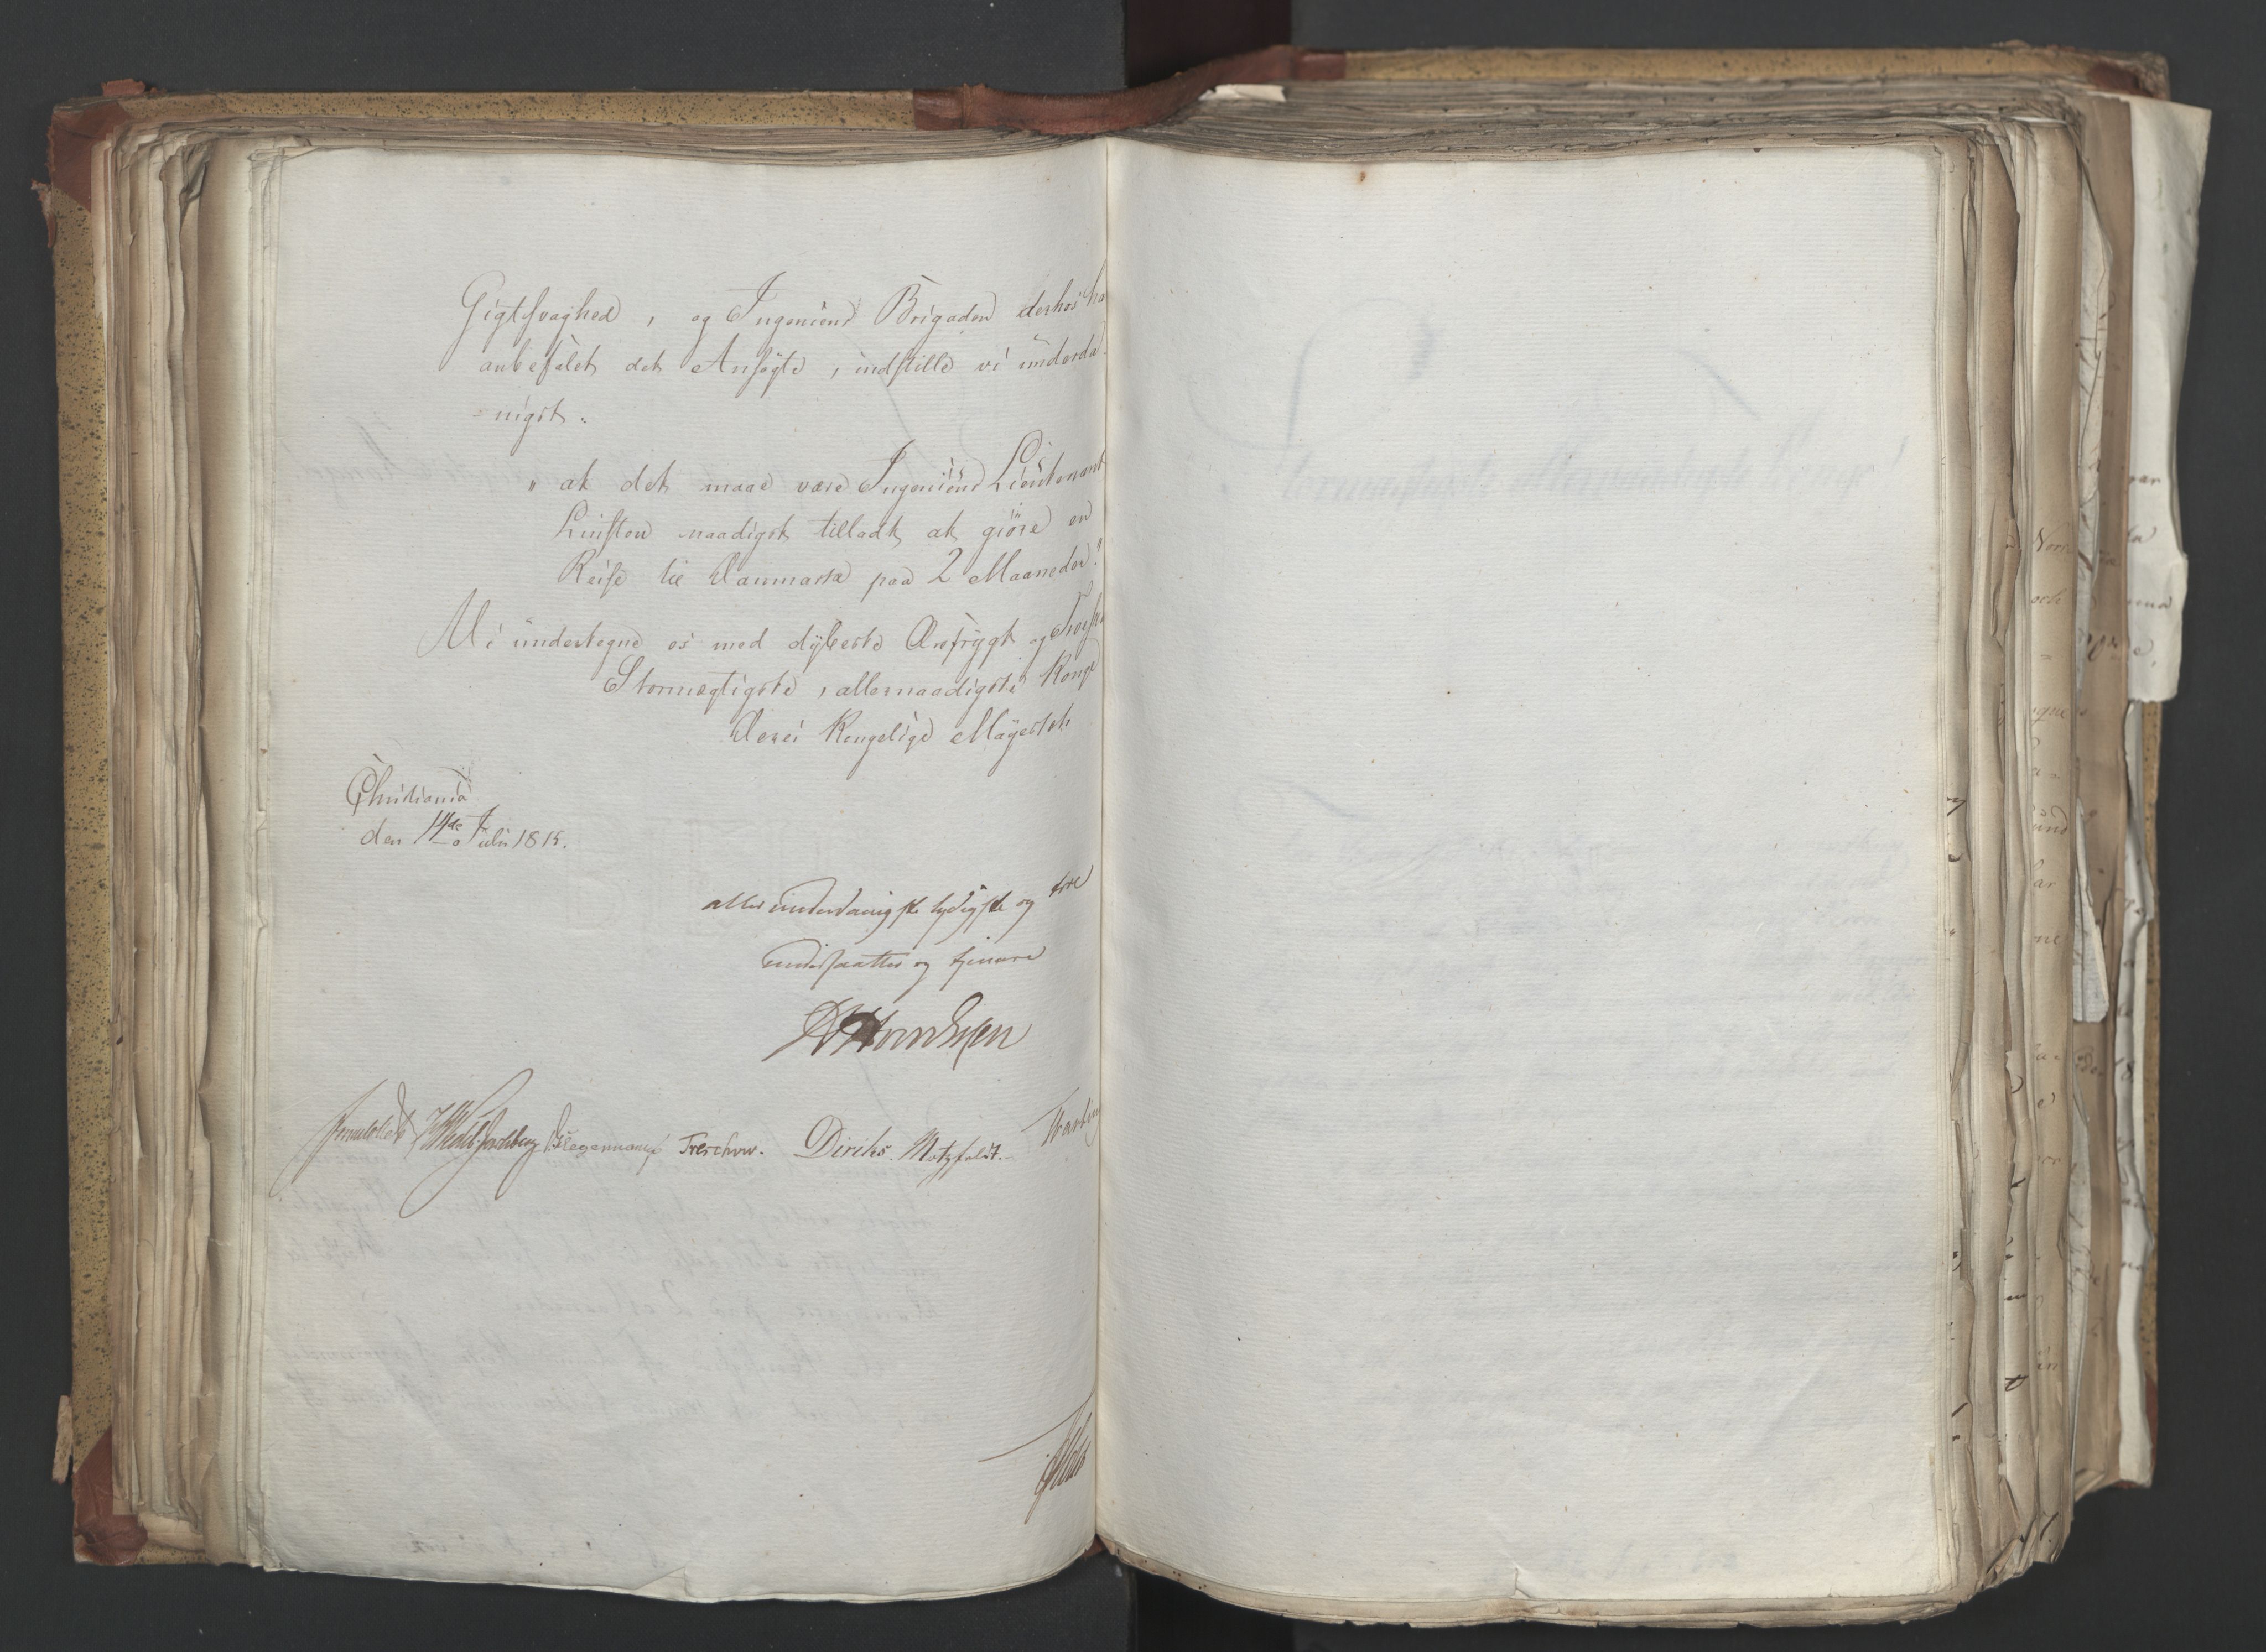 Gigtsvaghed, og Ingenieur Brigaden derhos ha
anbefalet det Ansøgte, indstille vi underda-
=nigst:
"at det maae være Ingenieur Lieutenant
Linstow naadigst tilladt at giöre en
Reise til Danmark paa 2 Maaneder."
Vi undertegne os med dybeste Ærefrygt og Troskab
Stormægtigste, allernaadigste Konge
Deres Kongelige Mayestæt
Christiania
den 14de Julii 1815.
allerunderdanigste lydigste og troe
undersaatter og tjenere
Sommerhielm Wedel Jarlsberg Hegermann Treschow. Diriks. Motzfeldt.